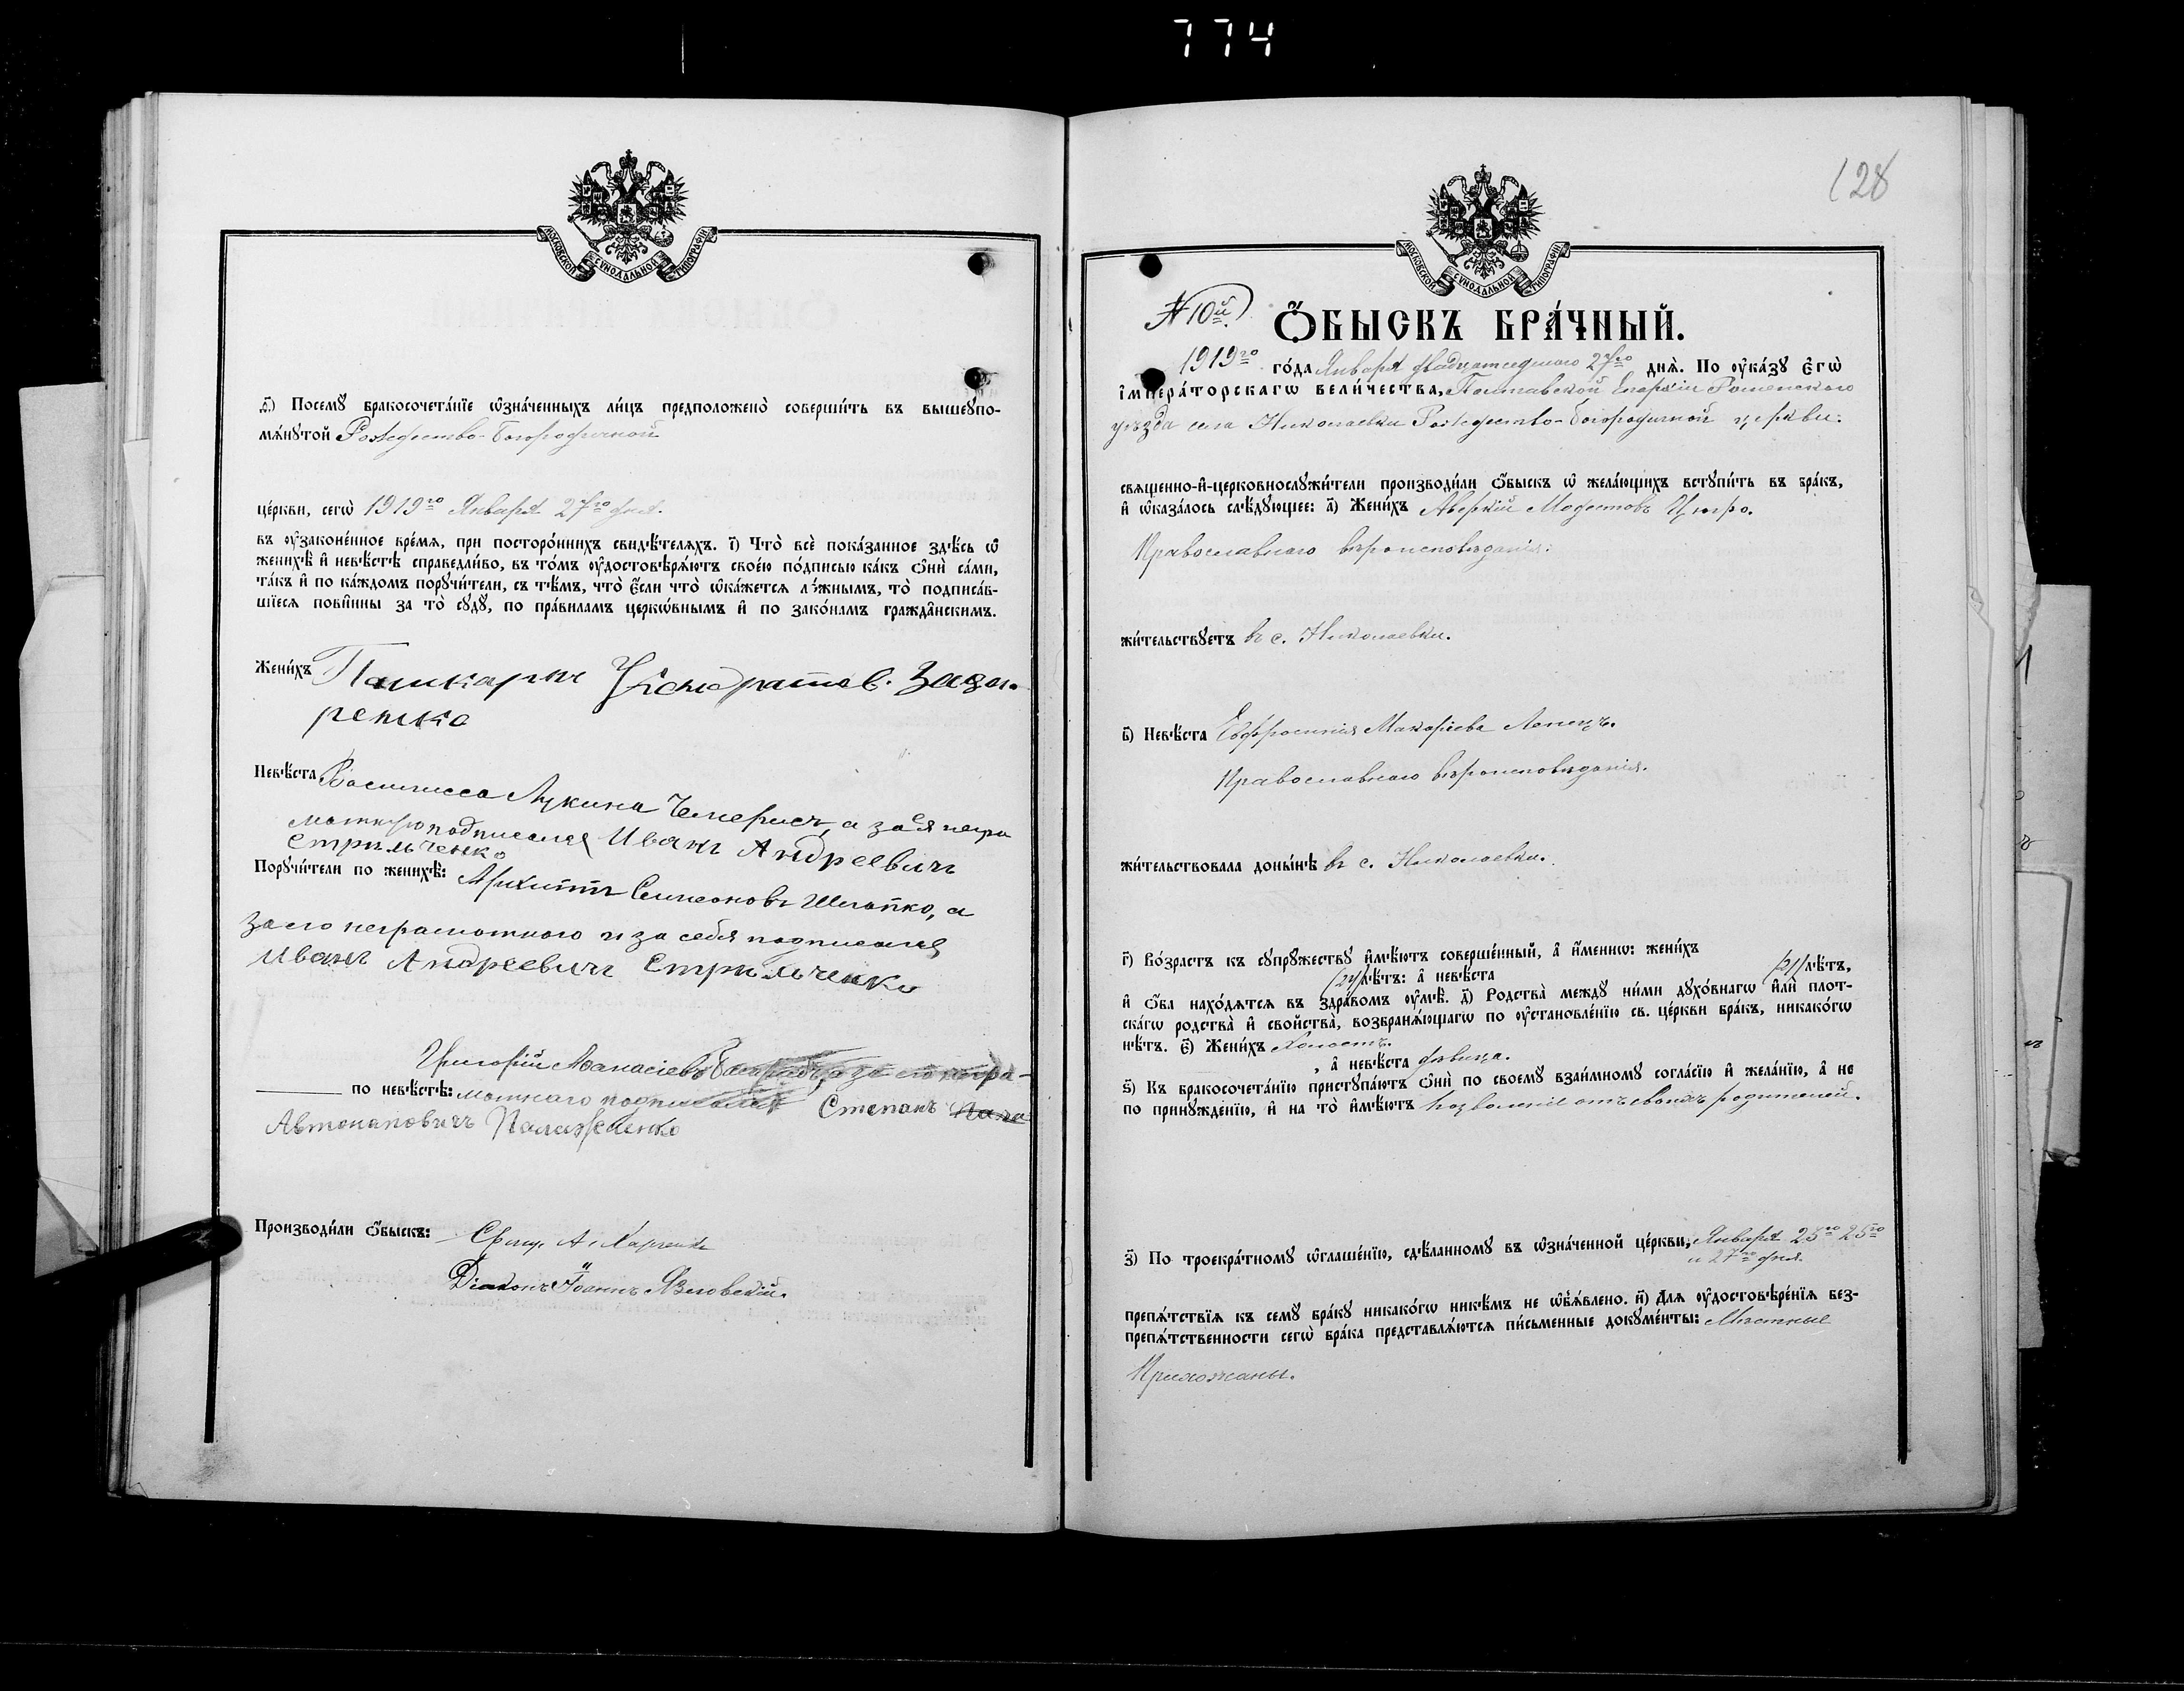 774
МОСКОВСКОЙ СУНОДАЛЬНОЙ ТИПОГРАФІИ
д҃) Посемꙋ̀ бракосочета́нїе ѡ҆зна́ченныхъ ли́цъ предположено̀ соверши́ть въ вышеꙋпо-
мѧ́нꙋтой Рождество-Богородичной
це́ркви, сегѡ̀ 1919го Января 27го дня.
въ ᲂу҆зако́ненное вре́мѧ, при посторо́ннихъ свидѣ́телѧхъ. і҃) Что̀ всѐ пока́занное здѣ́сь ѡ҆
женихѣ̀ и҆ невѣ́стѣ справедли́во, въ то́мъ ᲂу҆достовѣрѧ́ютъ свое́ю по́дписью ка́къ ѻ҆нѝ са́ми,
та́къ и҆ по ка́ждомъ порꙋчи́тели, съ тѣ́мъ, что̀ є҆́сли что̀ ѡ҆ка́жетсѧ ло́жнымъ, то̀ подписа́в-
шїесѧ пови́нны за то̀ сꙋдꙋ̀, по пра́виламъ церкѡ́внымъ и҆ по зако́намъ гражда́нскимъ.
Жени́хъ Кондратов. Зазы-
ренко
Невѣ́ста Василисса Лукина Чемерисъ, а за ея негра
мотную подписался Иванъ Андреевичъ
Стрильченко
Порꙋчи́тели по женихѣ̀: Архиппъ Симеоновъ Шлапко, а
за его неграмотного и за себя подписался
Иванъ Андреевичъ Стрильченко
Григорій Аѳанасіевъ а за его негра-
по невѣ́стѣ: мотнаго подписался Степанъ
Автонаповичъ Паламаренко
Производи́ли ѻ҆́быскъ: Свящ. А. Харченко
Діаконъ Іоаннъ Язловскій.
128
МОСКОВСКОЙ СУНОДАЛЬНОЙ ТИПОГРАФІИ
№ 10й
ѺБЫСКЪ БРА́ЧНЫЙ.
1919го го́да Января двадцатседмого 27го днѧ̀. По ᲂу҆ка́зꙋ Є҆гѡ̀
І҆мпера́торскагѡ вели́чества, Полтавской Епархіи Роменского
уѣзда села Николаевки Рождество-Богородичной церкви:
свѧще́нно-и҆-церковнослꙋжи́тели производи́ли ѻ҆́быскъ ѡ҆ жела́ющихъ встꙋпи́ть въ бра́къ,
и҆ ѡ҆каза́лось слѣ́дꙋющее: а҃) Жени́хъ Аверкій Модестовъ Цюро.
Православнаго вѣроисповѣданія:
жи́тельствꙋетъ въ с. Николаевки.
в҃) Невѣ́ста Евфросинія Макаріева Лопецъ.
Православнаго вѣроисповѣданія.
жи́тельствовала доны́нѣ въ с. Николаевки.
г҃) Во́зрастъ къ сꙋпрꙋ́жествꙋ и҆мѣ́ютъ соверше́нный, а҆ и҆́меннѡ: жени́хъ
лѣ́тъ: а҆ невѣ́ста (21) лѣ́тъ,
и҆ ѻ҆́ба нахо́дѧтсѧ въ здра́вомъ ᲂу҆мѣ̀. д҃) Родства̀ междꙋ̀ ни́ми дꙋхо́внагѡ и҆лѝ плот-
ска́гѡ родства̀ и҆ свойства̀, возбранѧ́ющагѡ по ᲂу҆становле́нїю св. це́ркви бра́къ, никако́гѡ
нѣ́тъ. є҃) Жени́хъ Холостъ.
, а҆ невѣ́ста дѣвица.
ѕ҃) Къ бракосочета́нїю пристꙋпа́ютъ ѻ҆нѝ по своемꙋ̀ взаи́мномꙋ согла́сїю и҆ жела́нїю, а҆ не
по принꙋжде́нїю, и҆ на то̀ и҆мѣ́ютъ позволеніе отъ своихъ родителей.
з҃) По троекра́тномꙋ ѡ҆глаше́нїю, сдѣ́ланномꙋ въ ѡ҆зна́ченной це́ркви, Января 25го 25го
и 27го дня.
препѧ́тствїѧ къ семꙋ̀ бра́кꙋ никако́гѡ никѣ́мъ не ѡ҆б̾ѧ́влено. и҃) Длѧ ᲂу҆достовѣре́нїѧ без-
препѧ́тственности сегѡ̀ бра́ка представлѧ́ютсѧ пи́сьменные докꙋме́нты: Мѣстные
Прихожаны.